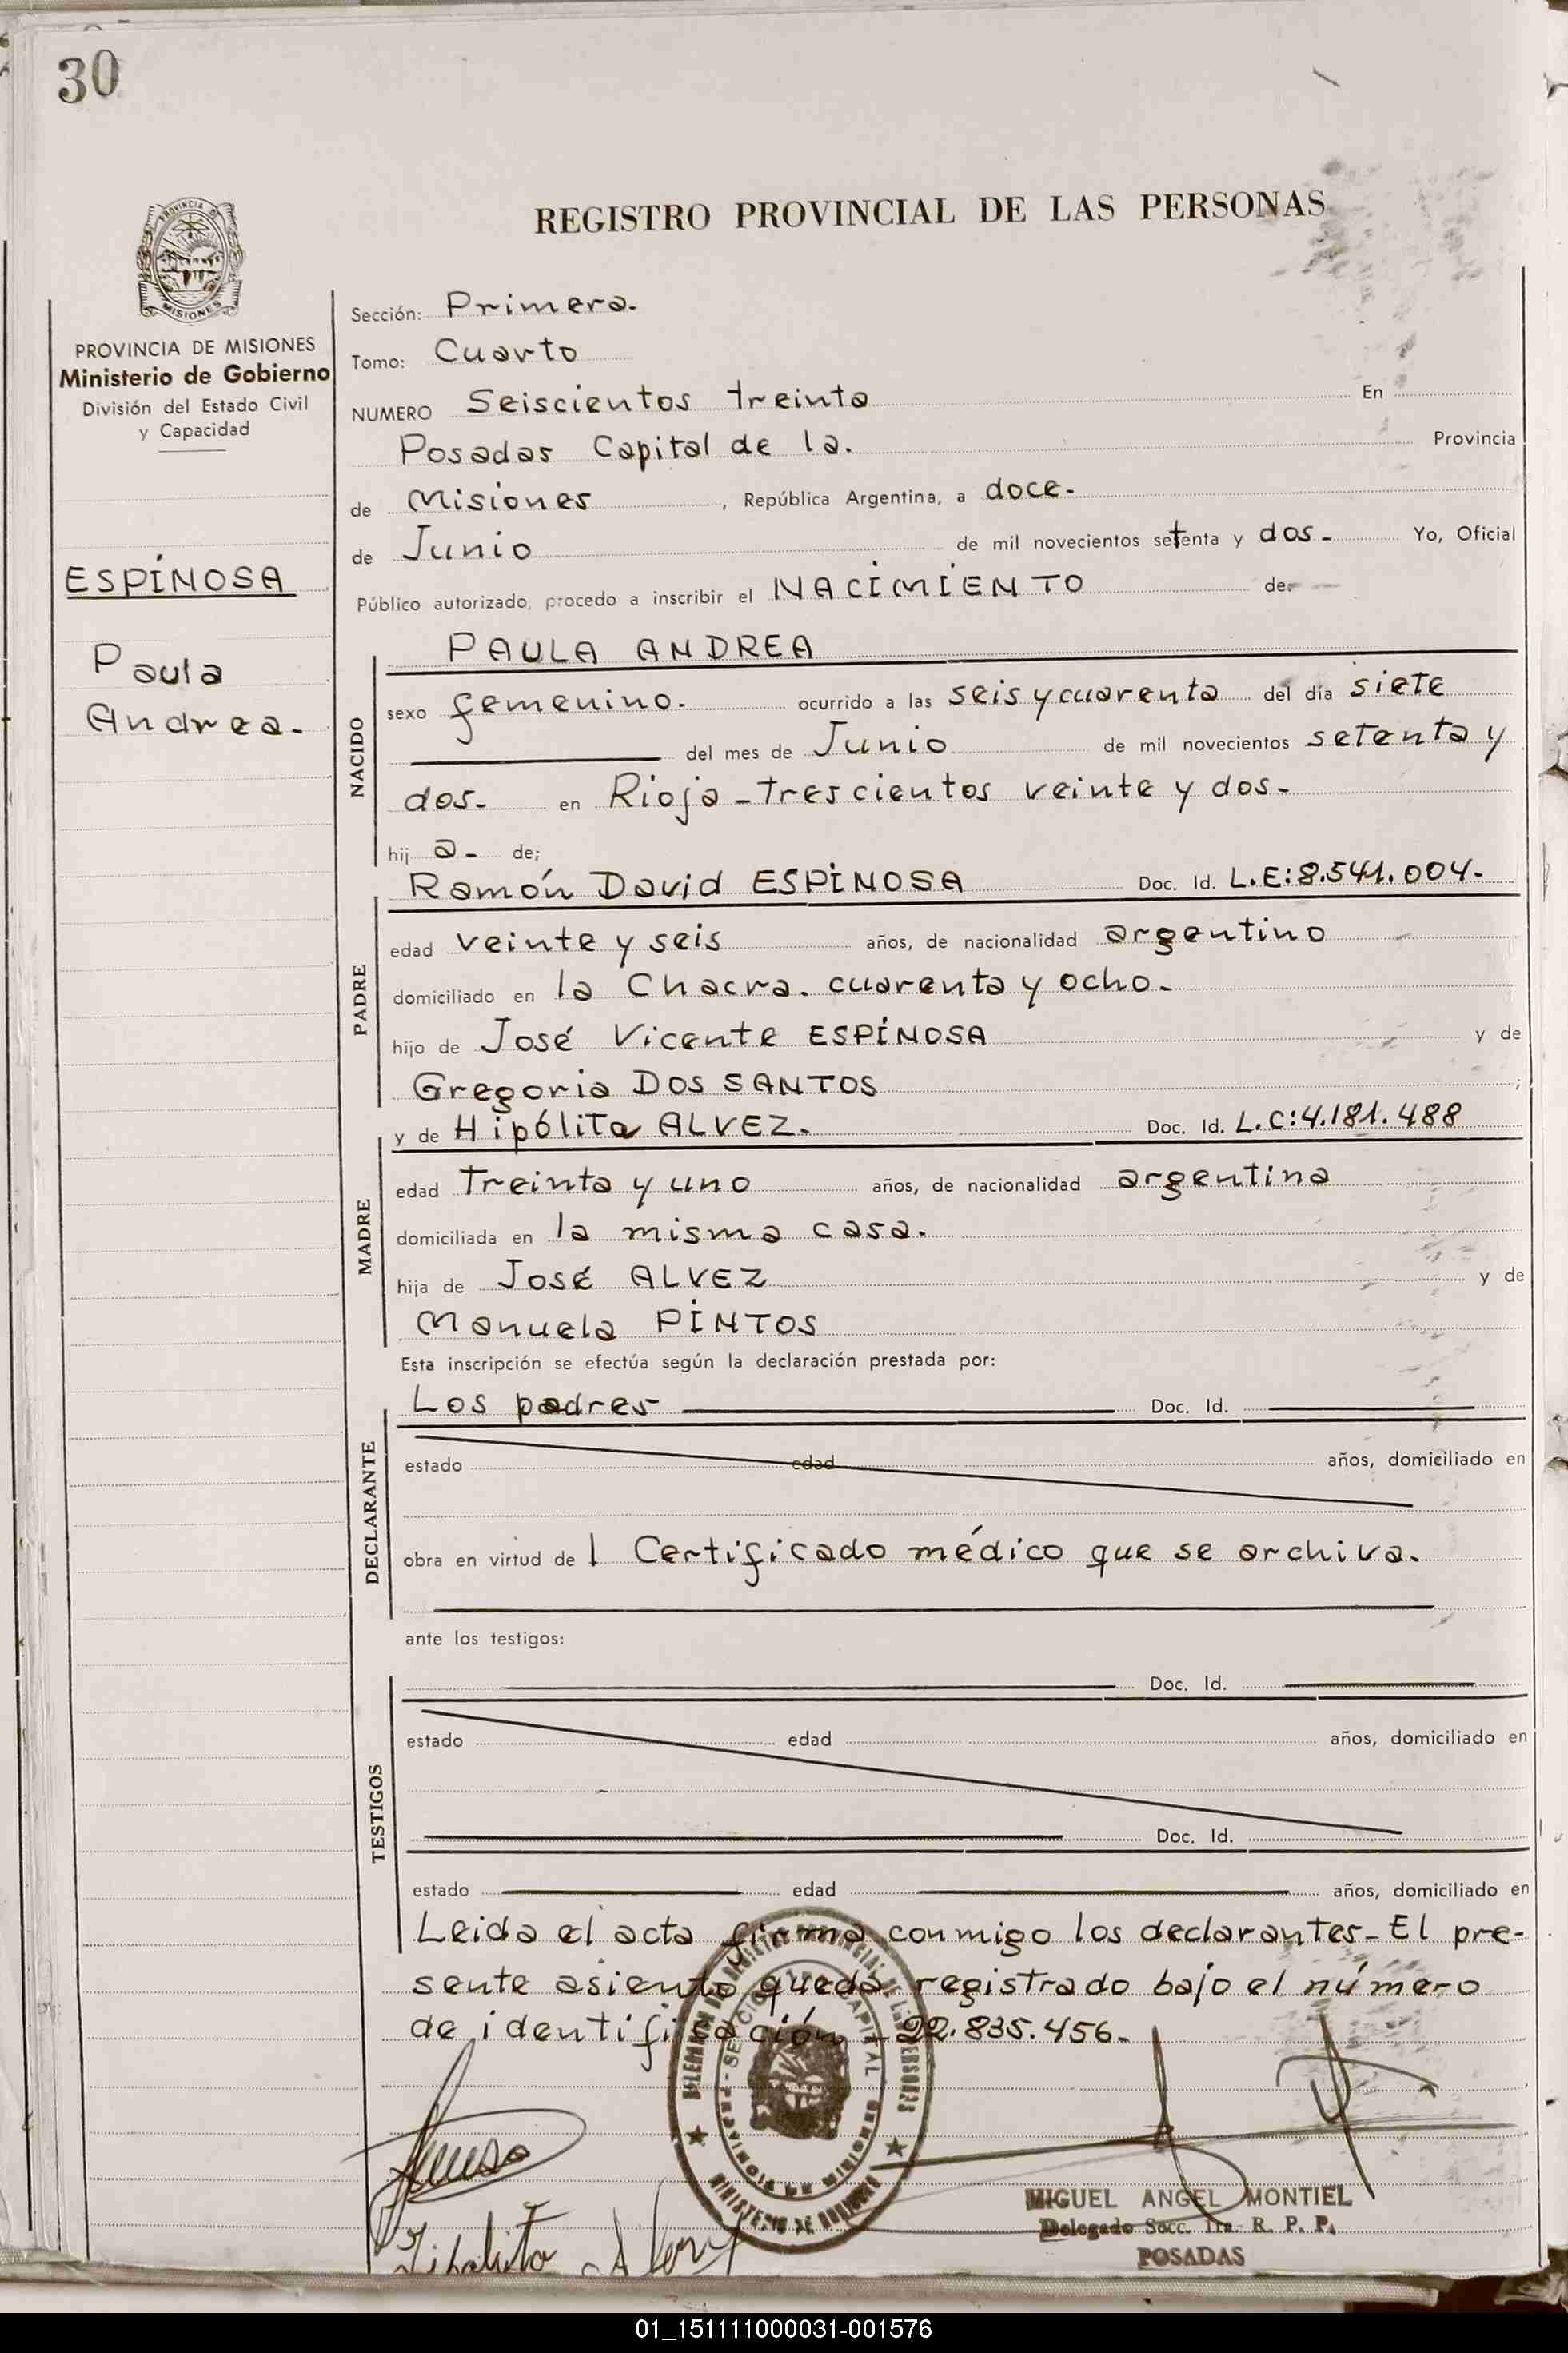 30
REGISTRO PROVINCIAL DE LAS PERSONAS
PROVINCIA DE
MISIONES
PROVINCIA DE MISIONES
Ministerio de Gobierno
División del Estado Civil
y Capacidad
ESPINOSA
Paula
Andrea.
Sección: Primera.
Tomo: Cuarto
NUMERO Seiscientos treinta En
Posadas Capital de la. Provincia
de Misiones, República Argentina, a doce.
de Junio de mil novecientos setenta y dos. Yo, Oficial
Público autorizado, procedo a inscribir el NACIMIENTO de:
PAULA ANDREA
NACIDO
sexo femenino. ocurrido a las seis y cuarenta del día siete
del mes de Junio de mil novecientos setenta y
dos. en Rioja - trescientos veinte y dos.
hij a. de;
Ramón David ESPINOSA Doc. Id. L.E:8.541.004.
PADRE
edad veinte y seis años, de nacionalidad argentino
domiciliado en la Chacra. cuarenta y ocho.
hijo de José Vicente ESPINOSA y de
Gregoria DOS SANTOS ;
y de Hipólita ALVEZ. Doc. Id. L.C:4.181.488
MADRE
edad Treinta y uno años, de nacionalidad argentina
domiciliada en la misma casa.
hija de José ALVEZ y de
Manuela PINTOS
Esta inscripción se efectúa según la declaración prestada por:
Los padres Doc. Id.
DECLARANTE
estado edad años, domiciliado en
obra en virtud de 1 Certificado médico que se archiva.
ante los testigos:
Doc. Id.
TESTIGOS
estado edad años, domiciliado en
Doc. Id.
estado edad años, domiciliado en
Leida el acta firma conmigo los declarantes. El pre-
sente asiento queda registrado bajo el número
de identificación - 22.835.456.
MIGUEL ANGEL MONTIEL
Delegado Secc. 1ra. R. P. P.
POSADAS
01_151111000031-001576